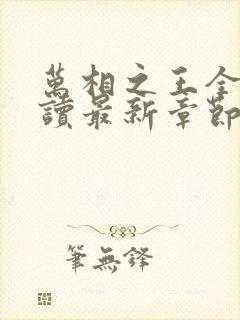 萬相之王全
讀最新章節
筆無鋒